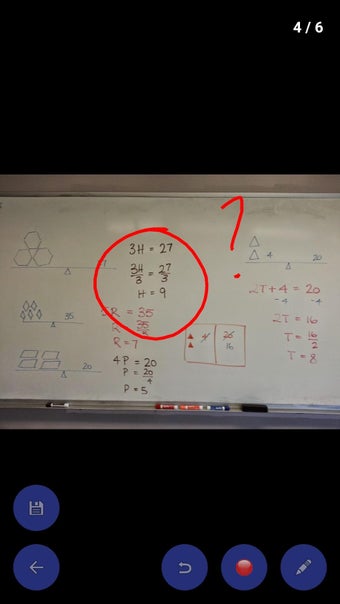 4 / 6
3H = 27
3H/3 = 27/3
H = 9
7
35
5R = 35
R = 7
20
4P = 20
P = 20/4
P = 5
?
4
20
2T + 4 = 20
-4 -4
2T = 16
T = 16/2
T = 8
4
16